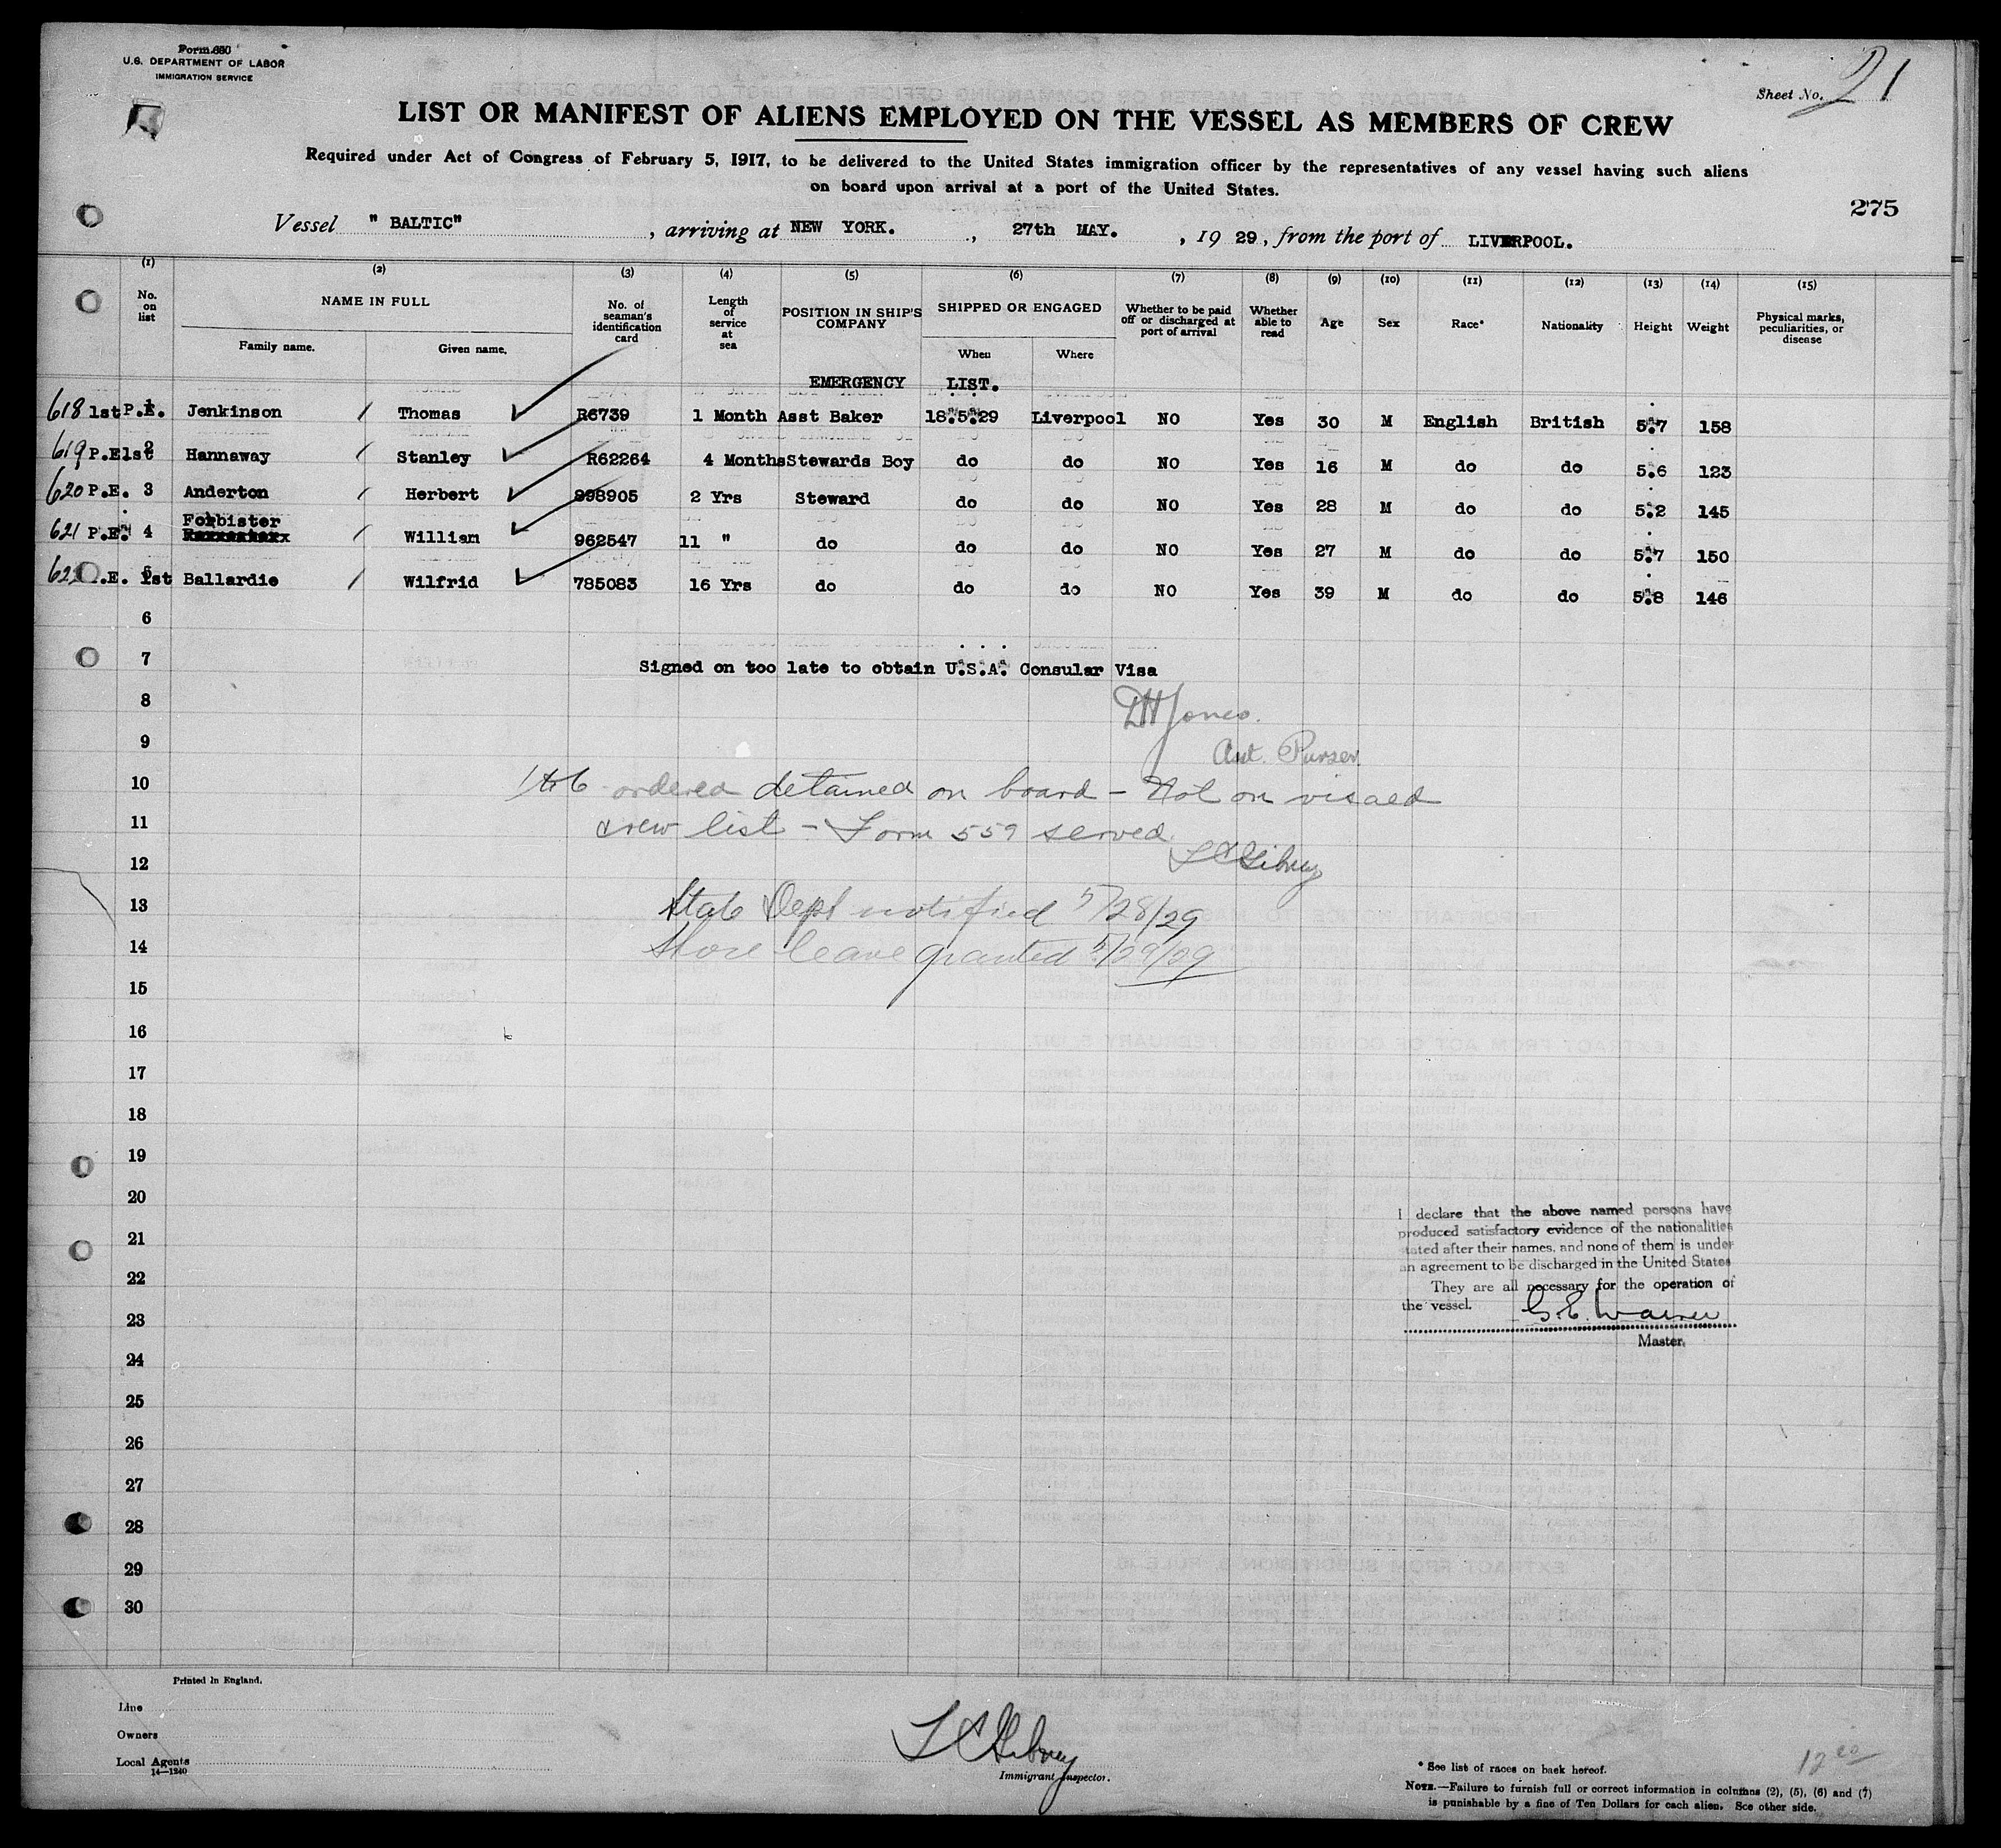 Form 680
U.S. DEPARTMENT OF LABOR
IMMIGRATION SERVICE
Sheet No. 21
LIST OR MANIFEST OF ALIENS EMPLOYED ON THE VESSEL AS MEMBERS OF CREW
Required under Act of Congress of February 5, 1917, to be delivered to the United States immigration officer by the representatives of any vessel having such aliens
on board upon arrival at a port of the United States.
275
Vessel " BALTIC" , arriving at NEW YORK. , 27th MAY. , 19 29, from the port of LIVERPOOL.
(1) (2) (3) (4) (5) (6) (7) (8) (9) (10) (11) (12) (13) (14) (15)
No. on list NAME IN FULL Family name. Given name. No. of seaman's identification card Length of service at sea POSITION IN SHIP'S COMPANY SHIPPED OR ENGAGED When Where Whether to be paid off or discharged at port of arrival Whether able to read Age Sex Race* Nationality Height Weight Physical marks, peculiarities, or disease
EMERGENCY LIST.
618 1st P.E. 1 Jenkinson / Thomas R6739 1 Month Asst Baker 18.5.29 Liverpool NO Yes 30 M English British 5.7 158
619 P.E 1st 2 Hannaway / Stanley R62264 4 Months Stewards Boy do do NO Yes 16 M do do 5.6 123
620 P.E. 3 Anderton / Herbert 998905 2 Yrs Steward do do NO Yes 28 M do do 5.2 145
621 P.E. 4 Forbister / William 962547 11 " do do do NO Yes 27 M do do 5.7 150
622 .E. 1st 5 Ballardie / Wilfrid 785083 16 Yrs do do do NO Yes 39 M do do 5.8 146
6
7 Signed on too late to obtain U.S.A. Consular Visa
8 Jones.
9 Purser
10 ordered detained on board - Not on visaed
11 crew list - Form 559 served
12 L C Gibney
13 State Dept notified 5/28/29
14 Shore leave granted 5/29/29
15
16
17
18
19
20
21
22
23
24
25
26
27
28
29
30
I declare that the above named persons have
produced satisfactory evidence of the nationalities
stated after their names, and none of them is under
an agreement to be discharged in the United States
They are all necessary for the operation of
the vessel.
Master.
Printed in England.
Line
Owners
Local Agents
14—1240
L C Gibney
Immigrant Inspector.
12 00
* See list of races on back hereof.
NOTE.—Failure to furnish full or correct information in columns (2), (5), (6) and (7)
is punishable by a fine of Ten Dollars for each alien. See other side.